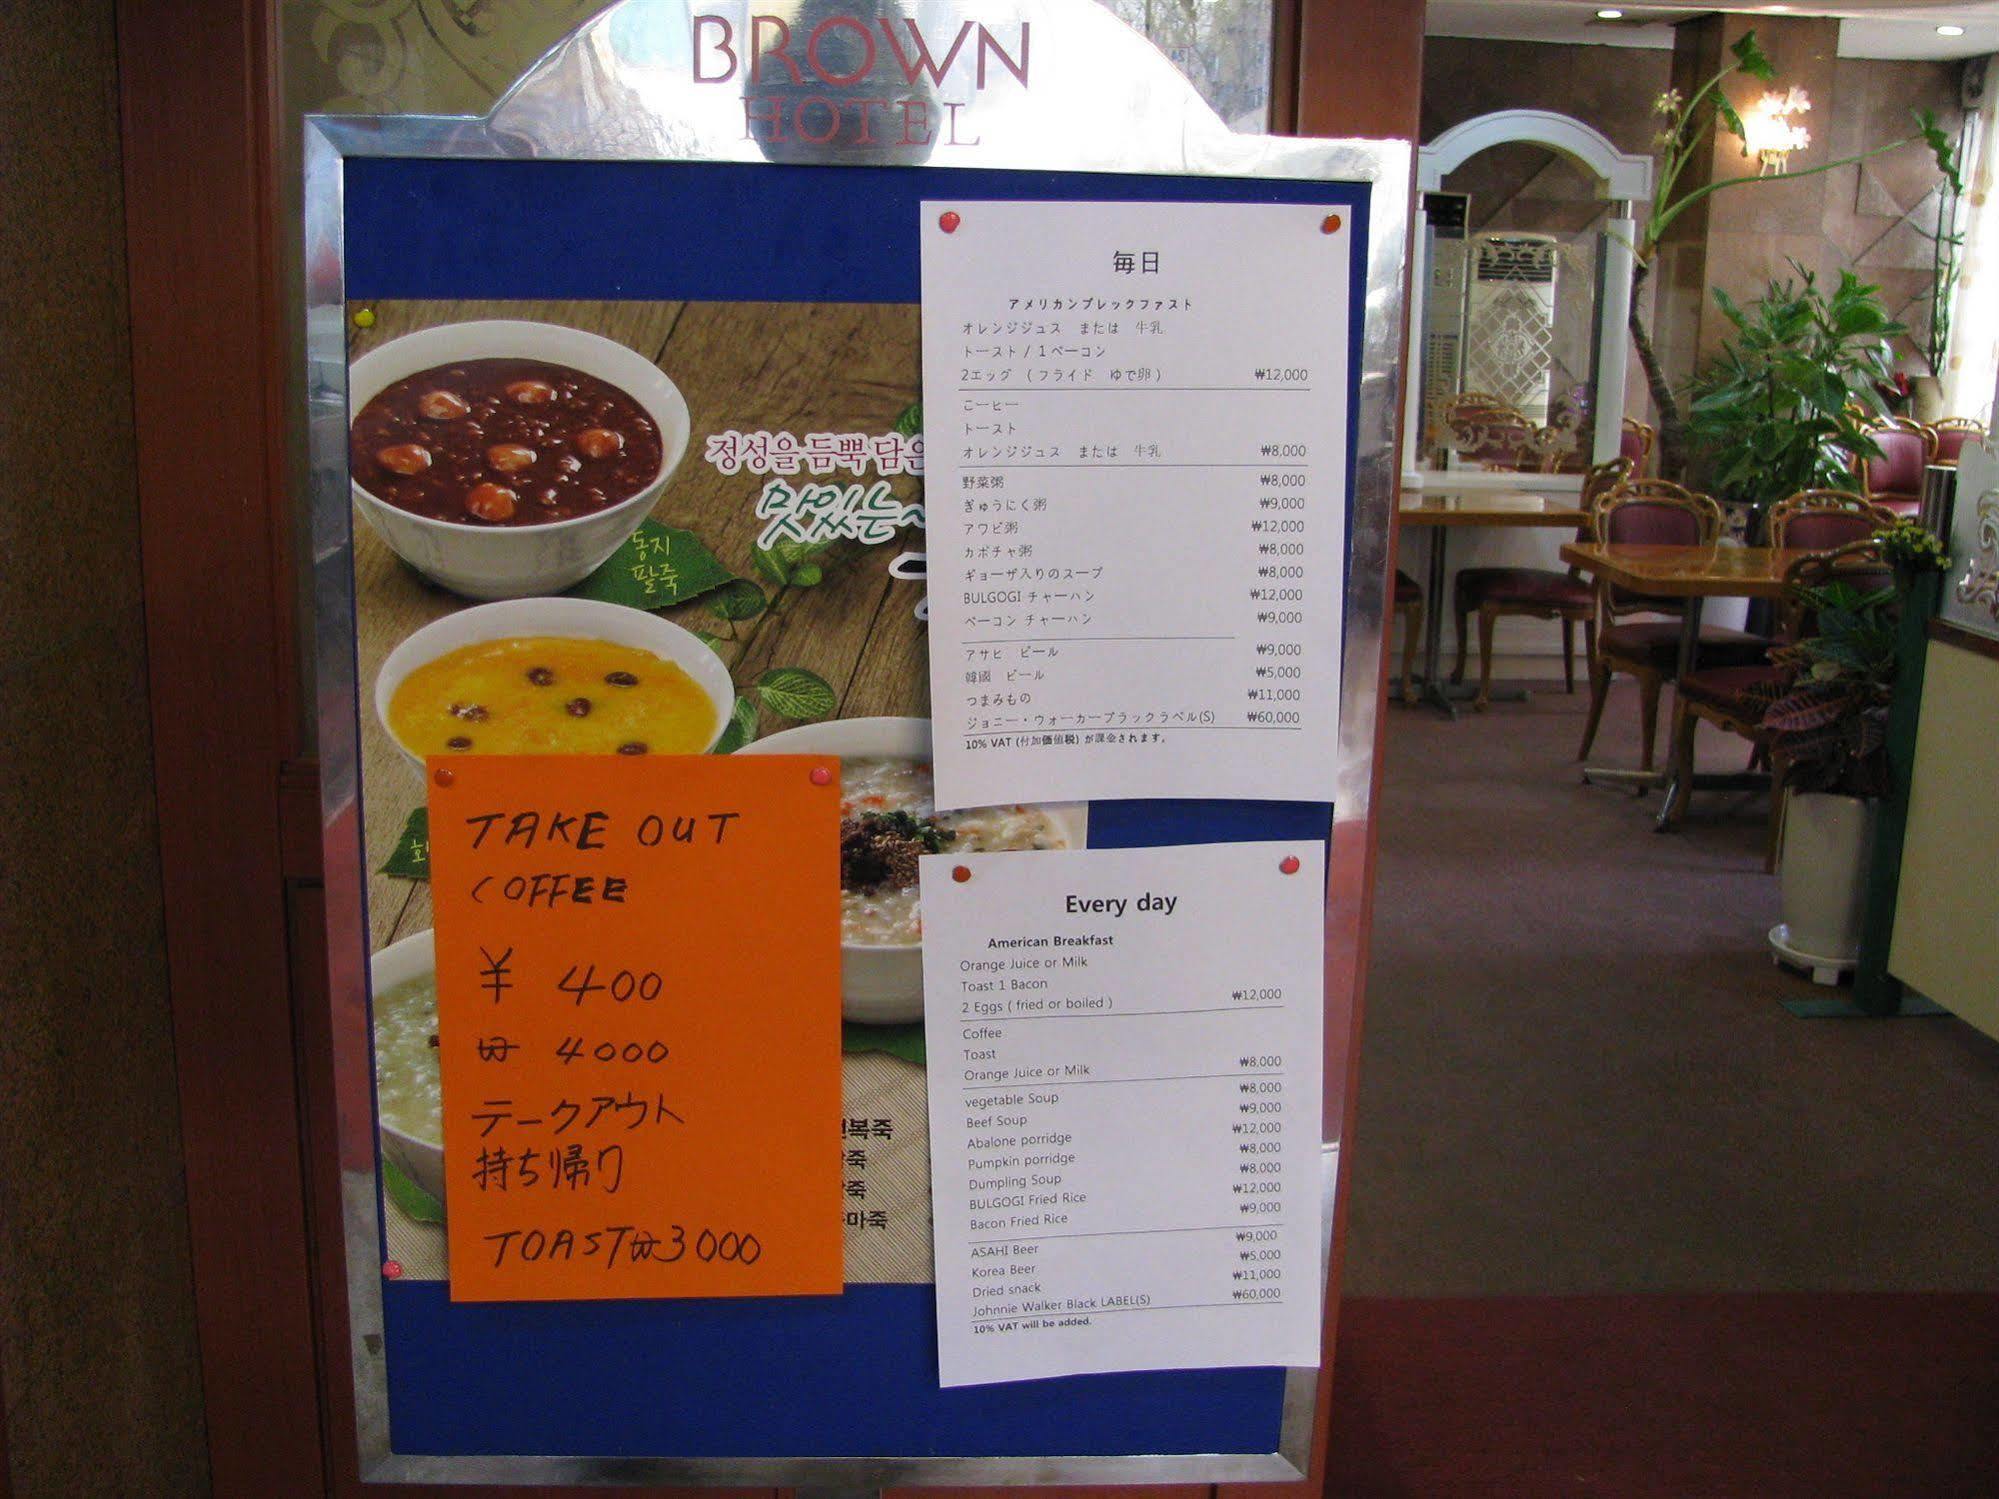 BROWN
HOTEL
정성을 듬뿍 담은
맛있는~
동지
팥죽
毎日
アメリカンブレックファスト
オレンジジュス または 牛乳
トースト / 1ベーコン
2エッグ ( フライド ゆで卵 ) ₩12,000
こーヒー
トースト
オレンジジュス または 牛乳 ₩8,000
野菜粥 ₩8,000
ぎゅうにく粥 ₩9,000
アワビ粥 ₩12,000
カボチャ粥 ₩8,000
ギョーザ入りのスープ ₩8,000
BULGOGI チャーハン ₩12,000
ベーコン チャーハン ₩9,000
アサヒ ビール ₩9,000
韓國 ビール ₩5,000
つまみもの ₩11,000
ジョニー・ウォーカーブラックラベル(S) ₩60,000
10% VAT (付加価値税) が課金されます。
TAKE OUT
COFFEE
¥ 400
₩ 4000
テークアウト
持ち帰り
TOAST ₩3000
복죽
죽
죽
마죽
Every day
American Breakfast
Orange Juice or Milk
Toast 1 Bacon
2 Eggs ( fried or boiled ) ₩12,000
Coffee
Toast
Orange Juice or Milk ₩8,000
vegetable Soup ₩8,000
Beef Soup ₩9,000
Abalone porridge ₩12,000
Pumpkin porridge ₩8,000
Dumpling Soup ₩8,000
BULGOGI Fried Rice ₩12,000
Bacon Fried Rice ₩9,000
ASAHI Beer ₩9,000
Korea Beer ₩5,000
Dried snack ₩11,000
Johnnie Walker Black LABEL(S) ₩60,000
10% VAT will be added.